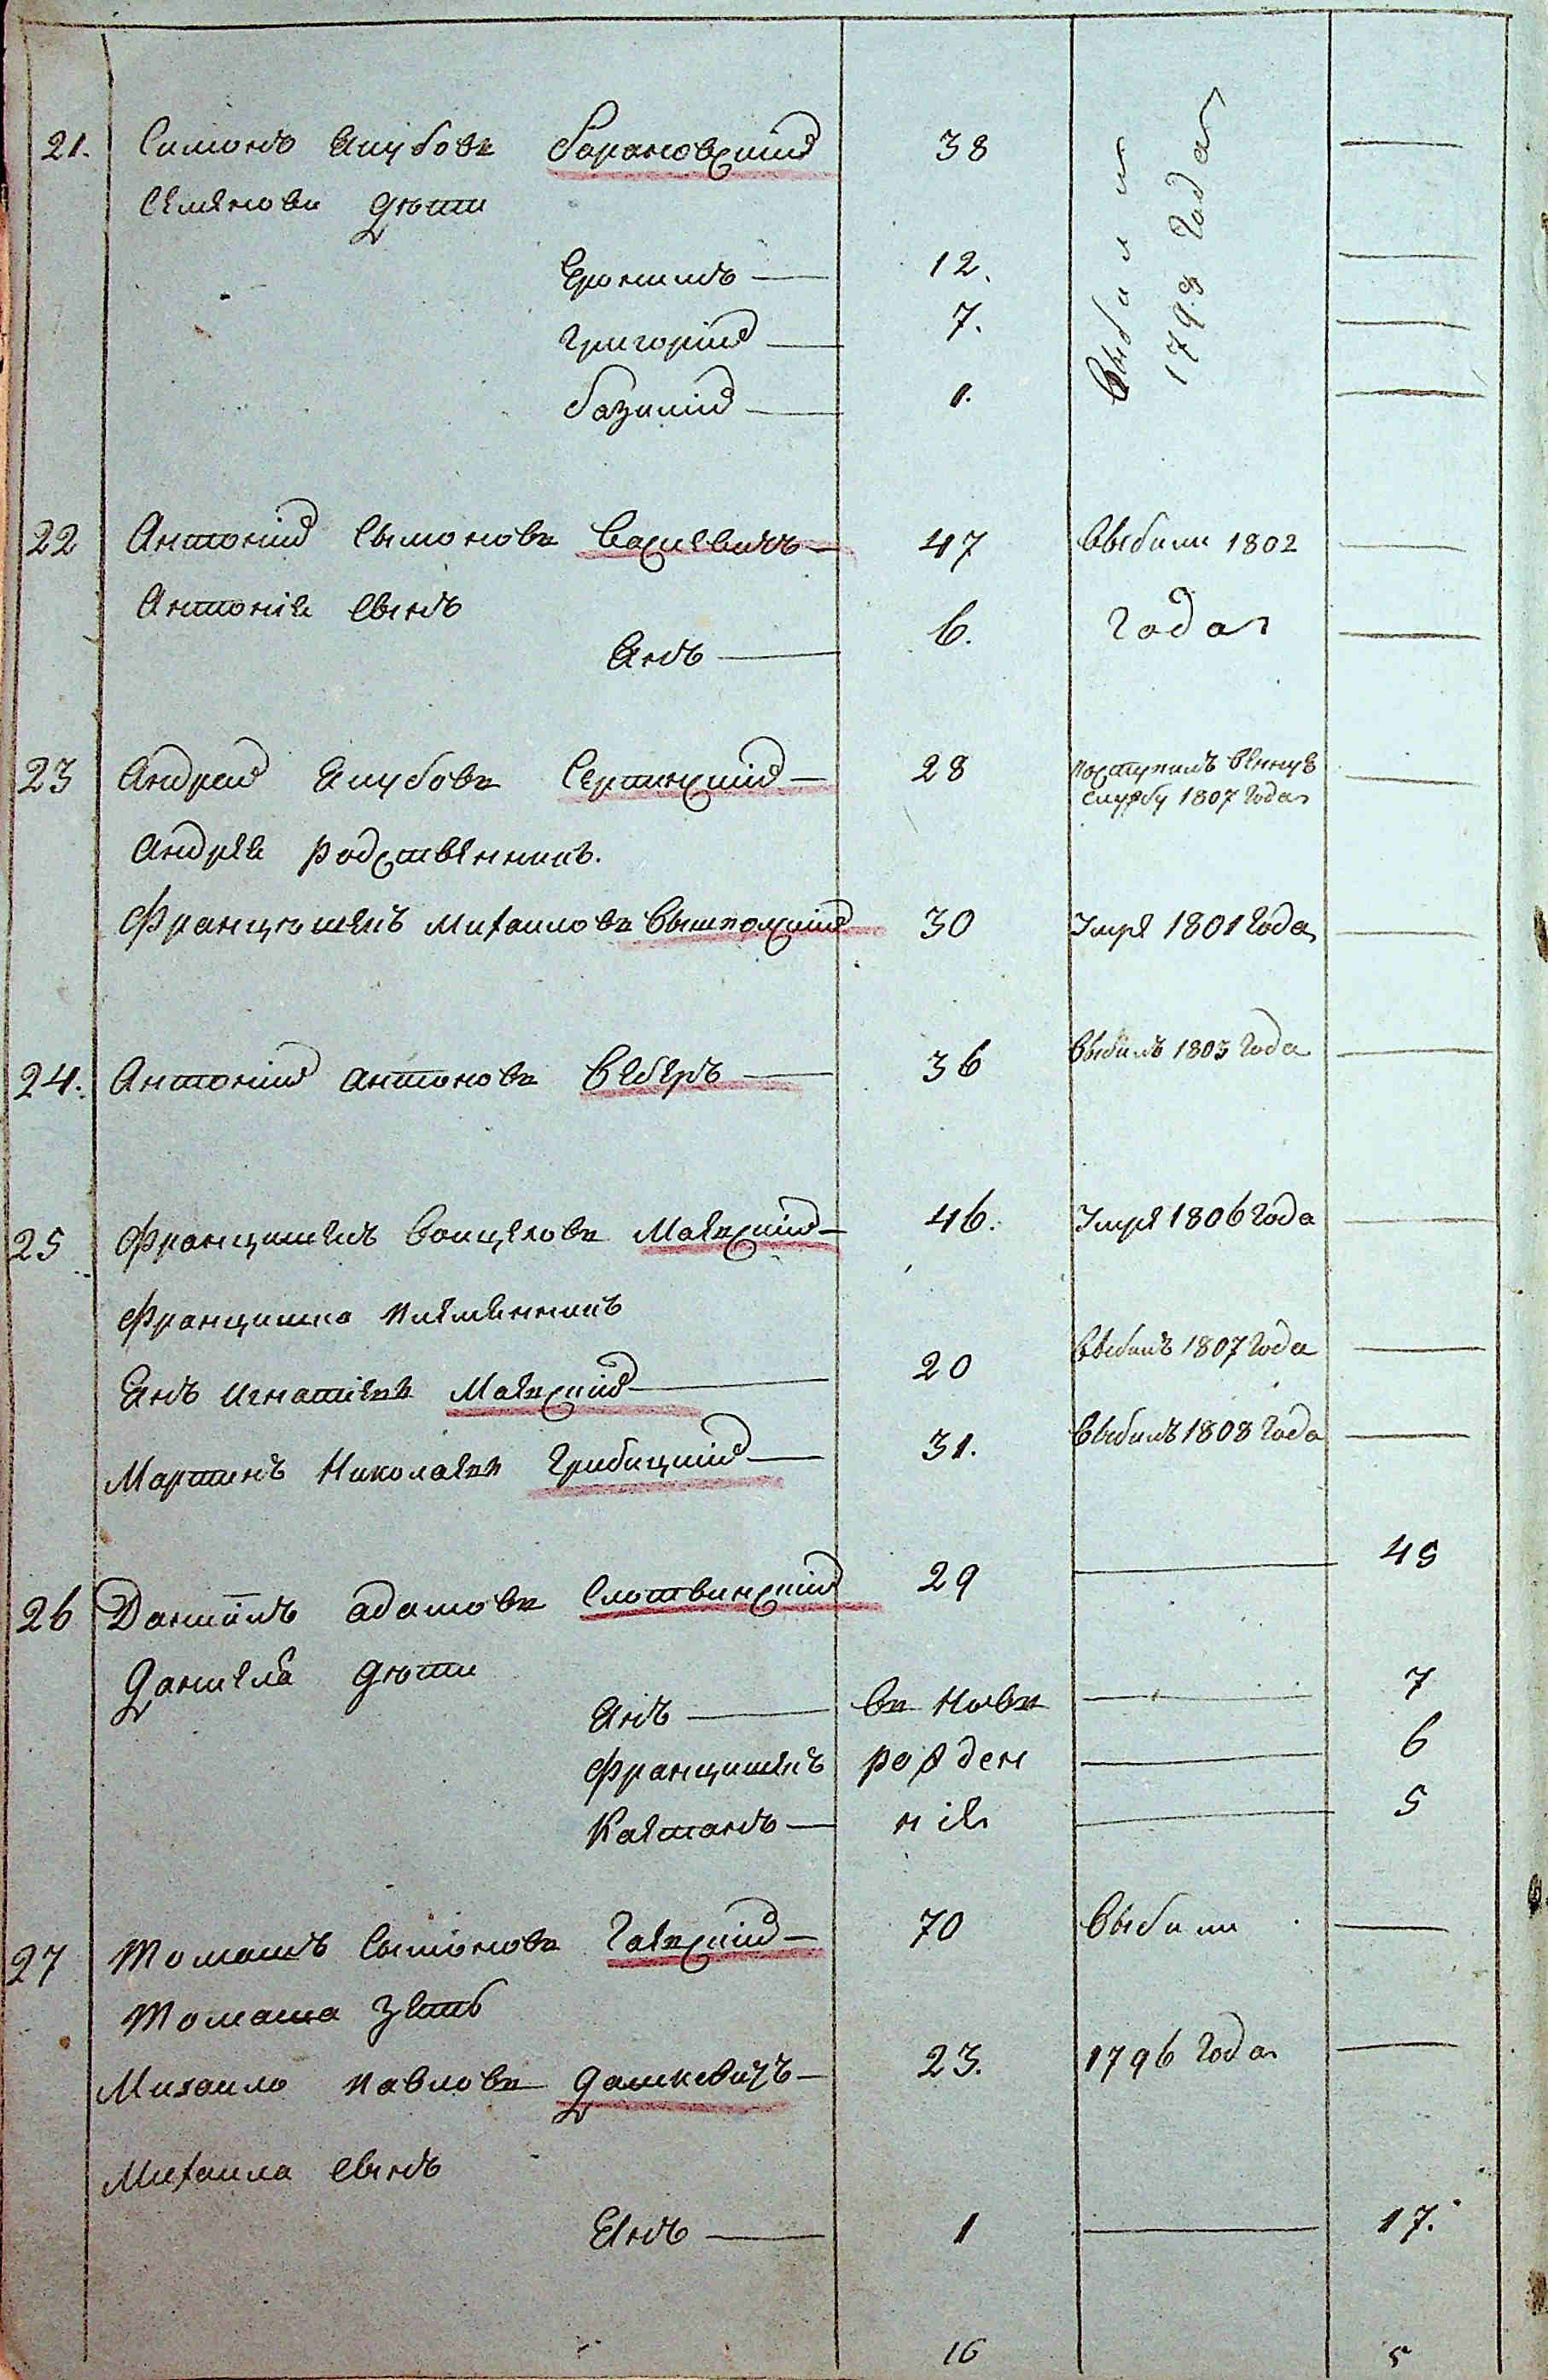 21. Симонъ Якубовъ Барановскій 38 Выбыли 1798 года —
Семенови дѣти
Еронимъ — 12. —
Григорій — 7. —
Базилій — 1. —
22 Антоній Сымоновъ Василевичъ — 47 Выбыли 1802 —
Антонія сынъ
Янъ — 6. года —
23 Андрей Якубовъ 28 поступилъ
службу 1807 года —
Андрея родственникъ.
Францышекъ Михаиловъ 30 Умре 1801 года —
24. Антоній Антоновъ Веберъ — 36 Выбылъ 1803 года —
25 Францишекъ Войцеховъ Маевскій — 46. Умре 1806 года —
Францишка племенникъ
Янъ Игнатіевъ Маевскій — 20 Выбылъ 1807 года —
Мартинъ Николаевъ Грибицкій — 31. Выбылъ 1808 года —
26 Даніилъ Адамовъ Слотвинскій 29 — 45
Даніела дѣти
Янъ — въ новъ — 7
Францишекъ рожден — 6
Каетанъ — нія — 5
27 Томашъ Сымоновъ Гаевскій — 70 Выбыли —
Томаша зять
Михаило Павловъ Дашкевичъ — 23. 1796 года —
Михаила сынъ
Янъ — 1 — 17.
16 5